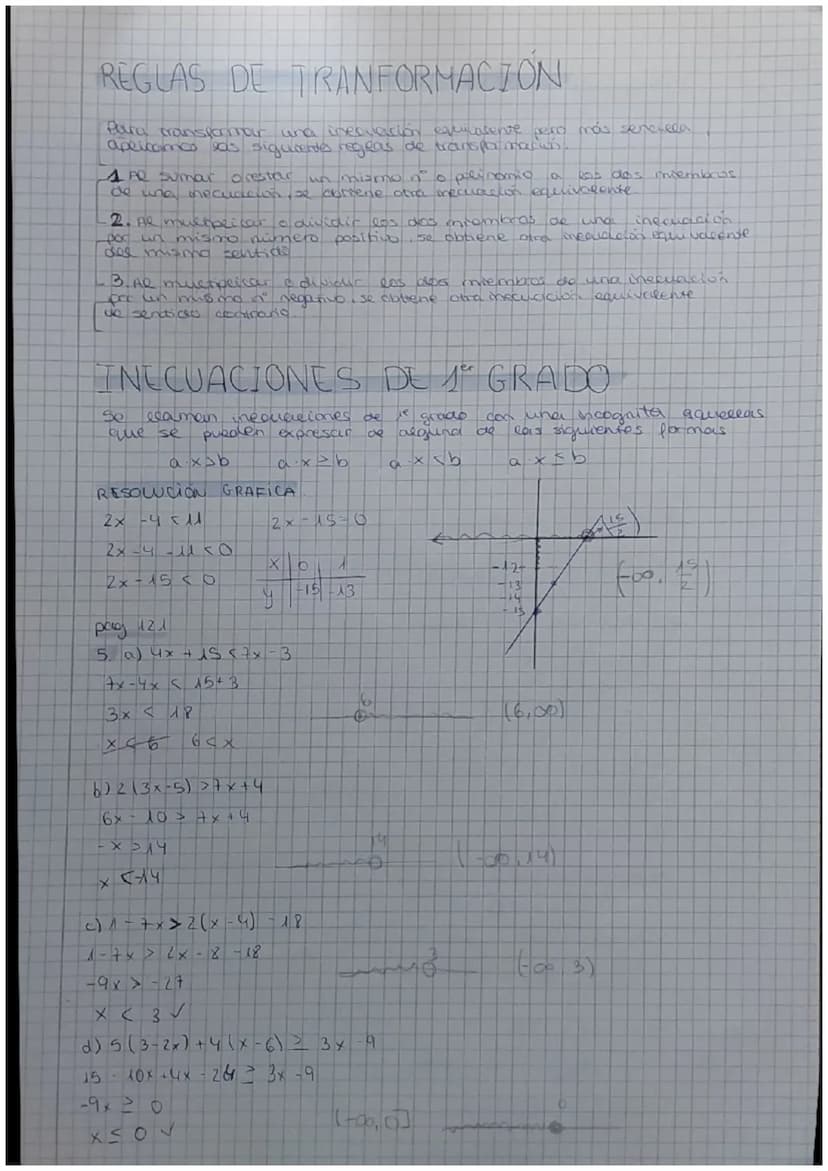 REGLAS DE TRANFORMACIÓN
Para transformar una inecuación equivalente pero más sencilla,
aplicamos las siguientes reglas de transformación.
1. Al sumar o restar un mismo nº o polinomio a los dos miembros
de una inecuación, se obtiene otra inecuación equivalente
2. Al multiplicar o dividir los dos miembros de una inecuación
por un mismo número positivo, se obtiene otra inecuación equivalente
del mismo sentido
3. Al multiplicar o dividir los dos miembros de una inecuación
por un mismo nº negativo, se obtiene otra inecuación equivalente
de sentido contrario.
INECUACIONES DE 1er GRADO
Se llaman inecuaciones de 1er grado con una incognita aquellas
que se pueden expresar de alguna de las siguientes formas
a·x>b a·x≥b a·x<b a·x≤b
RESOLUCIÓN GRAFICA
2x-4<11 2x-15=0
2x-4-11<0
x 0 1
2x-15<0
y -15 -13
15/2
-12
-13
-14
-15
(-∞, 15/2)
pag 121
5. a) 4x+15<7x-3
7x-4x < 15+3
3x < 18
6
(6,∞)
x<6 6<x
b) 2(3x-5)>7x+4
6x-10>7x+4
-x>14
14
(-∞,14)
x<-14
c) 1-7x>2(x-4)-18
1-7x>2x-8-18
3
(-∞,3)
-9x>-27
x<3 ✓
d) 5(3-2x)+4(x-6)≥3x-9
15-10x+4x-24≥3x-9
-9x≥0
0
(-∞,0]
x≤0 ✓